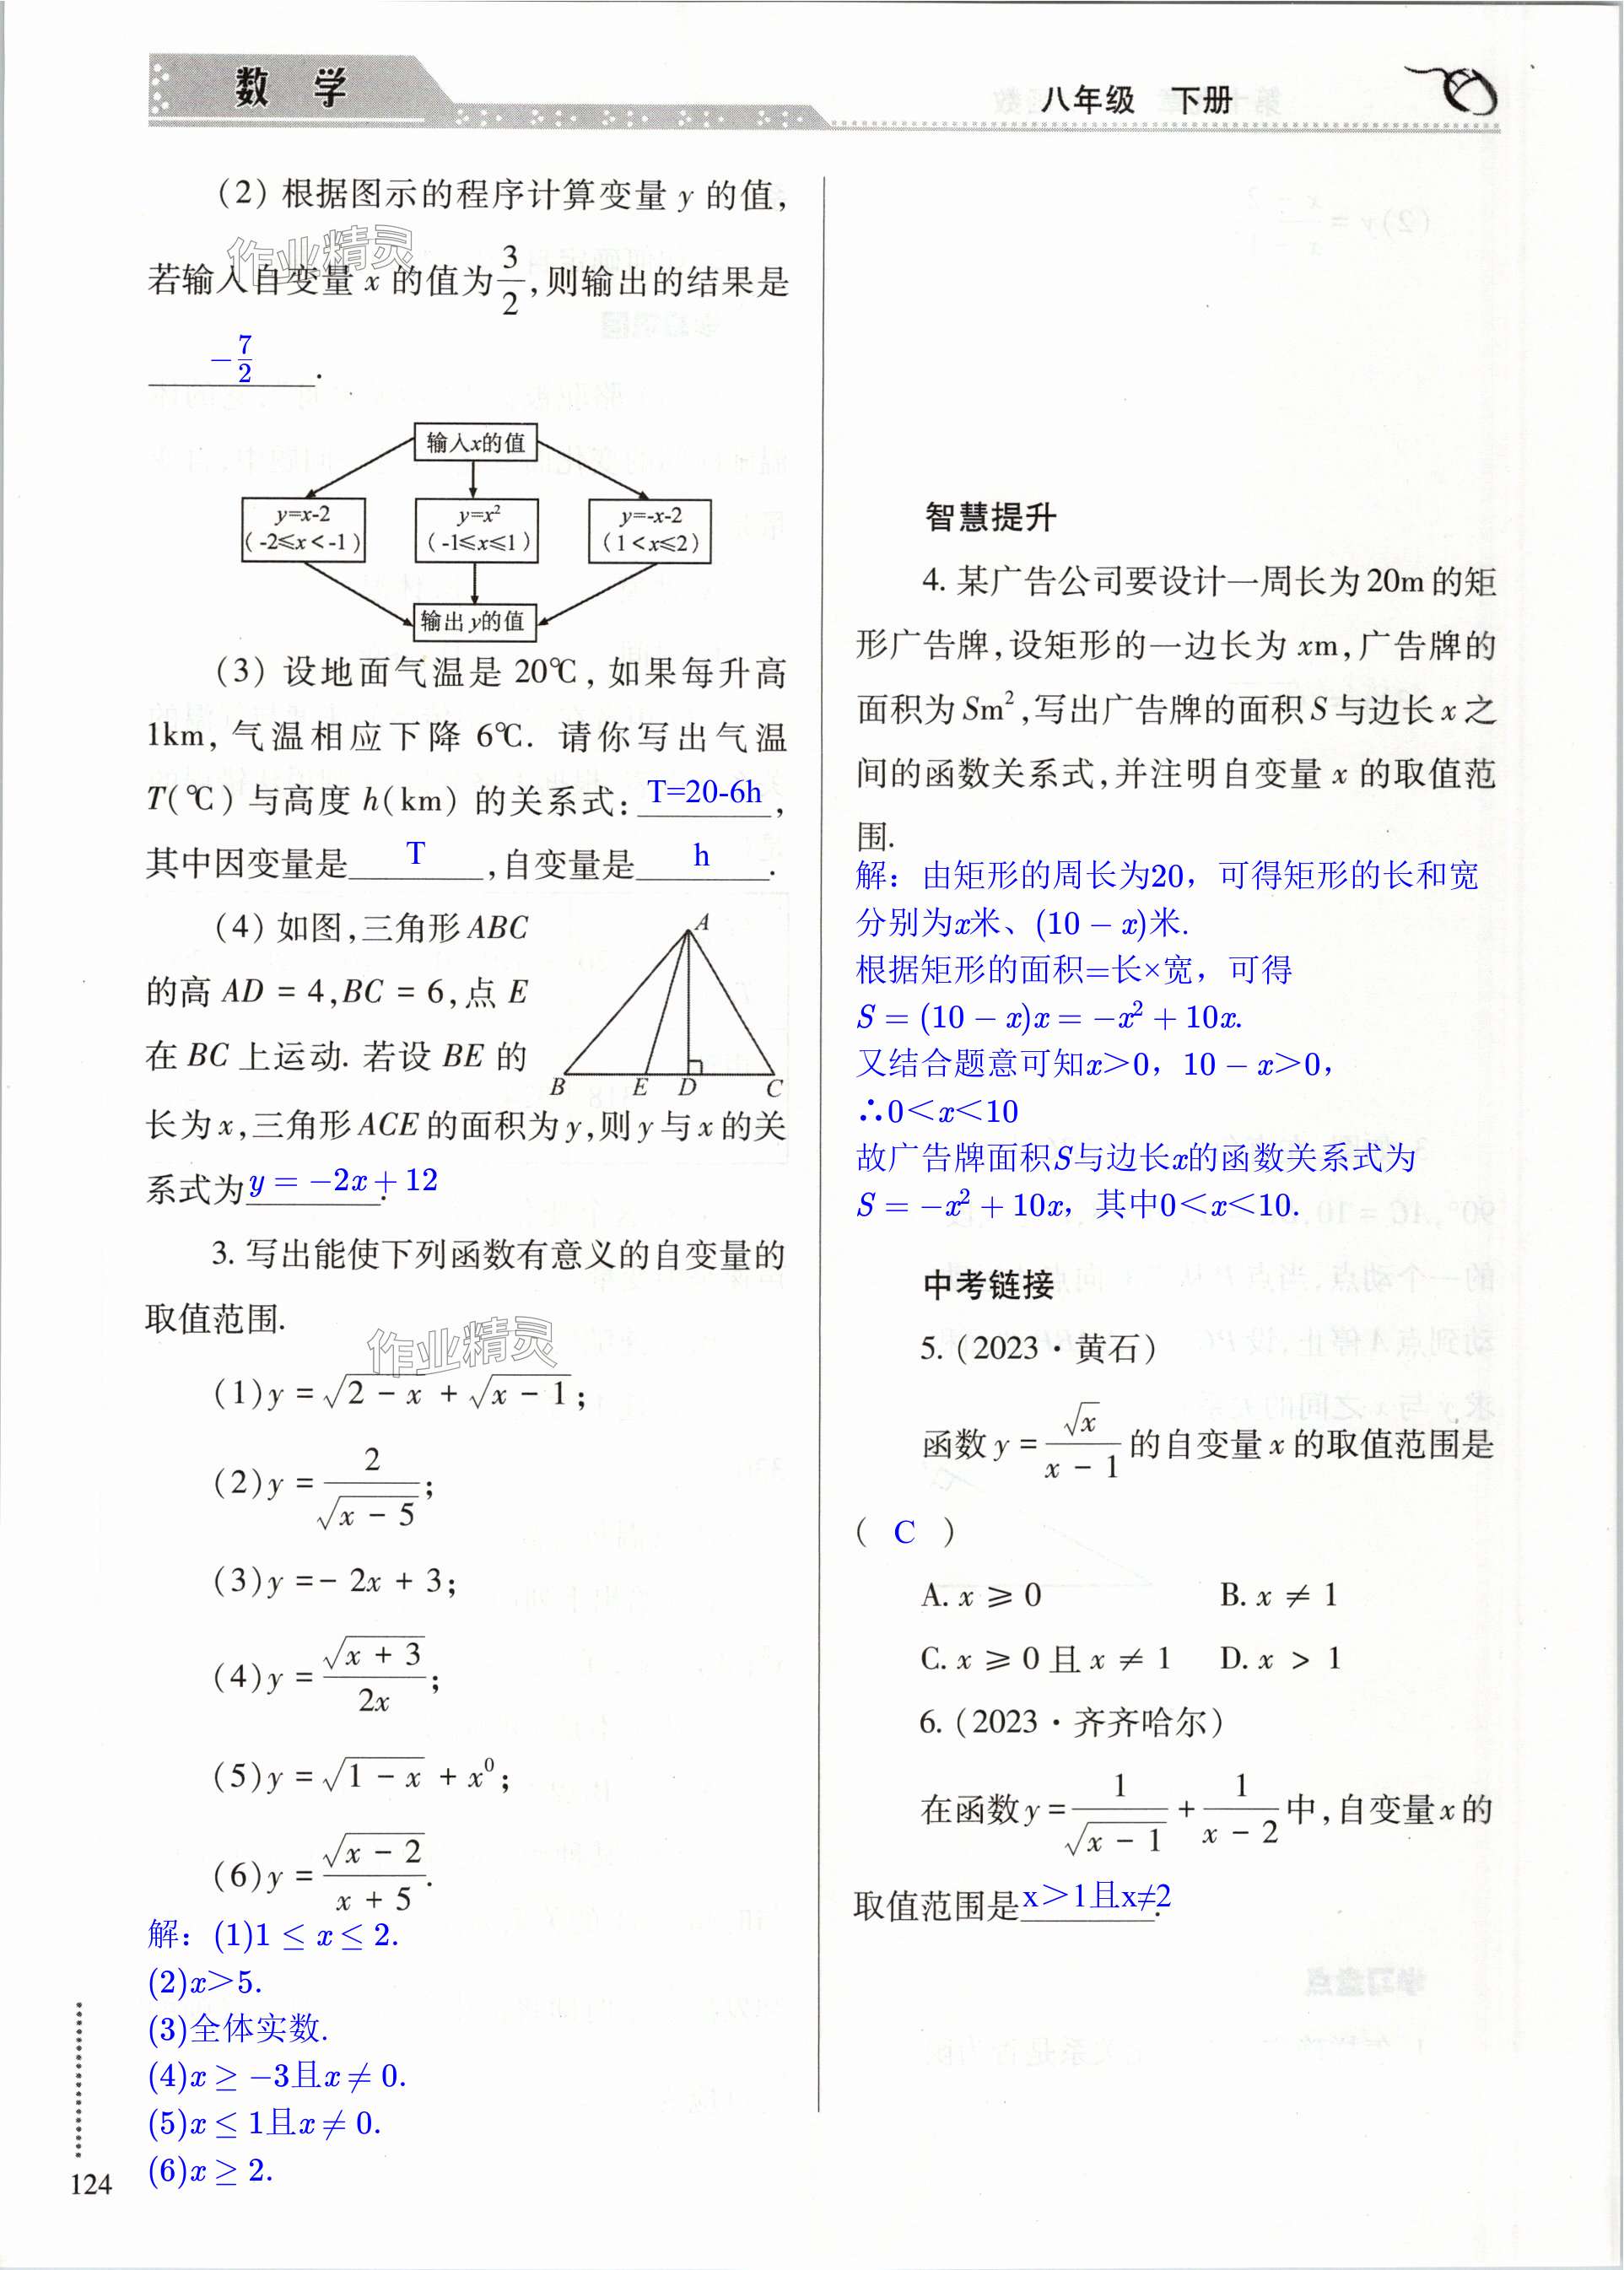 数 学
八年级 下册
(2) 根据图示的程序计算变量 y 的值,
若输入自变量 x 的值为 3/2 ,则输出的结果是
-7/2 .
作业精灵
输入x的值
y=x-2 (-2≤x<-1)
y=x² (-1≤x≤1)
y=-x-2 (1<x≤2)
输出y的值
(3) 设地面气温是 20℃, 如果每升高
1km, 气温相应下降 6℃. 请你写出气温
T(℃) 与高度 h(km) 的关系式: T=20-6h ,
其中因变量是 T ,自变量是 h .
(4) 如图,三角形 ABC
的高 AD = 4,BC = 6,点 E
在 BC 上运动. 若设 BE 的
A
B E D C
长为 x,三角形 ACE 的面积为 y,则 y 与 x 的关
系式为 y = −2x + 12 .
3. 写出能使下列函数有意义的自变量的
取值范围.
作业精灵
(1) y = √(2 − x) + √(x − 1) ;
(2) y = 2/√(x − 5) ;
(3) y = − 2x + 3;
(4) y = √(x + 3)/2x ;
(5) y = √(1 − x) + x⁰ ;
(6) y = √(x − 2)/(x + 5) .
解：(1)1 ≤ x ≤ 2.
(2)x>5.
(3)全体实数.
(4)x ≥ −3且x ≠ 0.
(5)x ≤ 1且x ≠ 0.
(6)x ≥ 2.
124
智慧提升
4. 某广告公司要设计一周长为 20m 的矩
形广告牌,设矩形的一边长为 xm,广告牌的
面积为 Sm²,写出广告牌的面积 S 与边长 x 之
间的函数关系式,并注明自变量 x 的取值范
围.
解：由矩形的周长为20，可得矩形的长和宽
分别为x米、(10 − x)米.
根据矩形的面积=长×宽，可得
S = (10 − x)x = −x² + 10x.
又结合题意可知x>0，10 − x>0，
∴0<x<10
故广告牌面积S与边长x的函数关系式为
S = −x² + 10x，其中0<x<10.
中考链接
5. (2023 · 黄石)
函数 y = √x/(x − 1) 的自变量 x 的取值范围是
( C )
A. x ⩾ 0 B. x ≠ 1
C. x ⩾ 0 且 x ≠ 1 D. x > 1
6. (2023 · 齐齐哈尔)
在函数 y = 1/√(x − 1) + 1/(x − 2) 中,自变量 x 的
取值范围是 x>1且x≠2 .